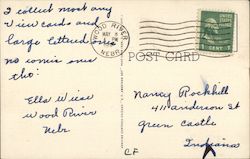 I collect most any
View cards and
large lettered
no comic ones
tho.
Ella Wiese
Wood River
Nebr
WOOD RIVER
MAY
PM
NEBR
1 CENT 1
POST CARD
Nancy Rockhill
411 anderson St
Green Castle
Indiana
CF